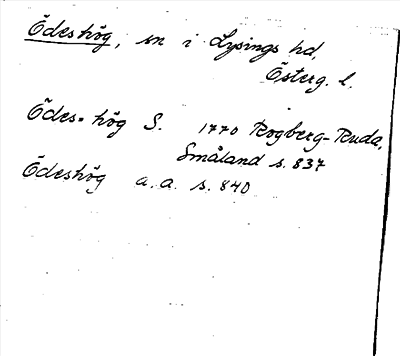 Ödeshög, sn i Lysings hd,
Österg. l.
Ödes-hög S. 1770 Rogberg-Ruda,
Småland s. 837
Ödeshög a.a. s. 840